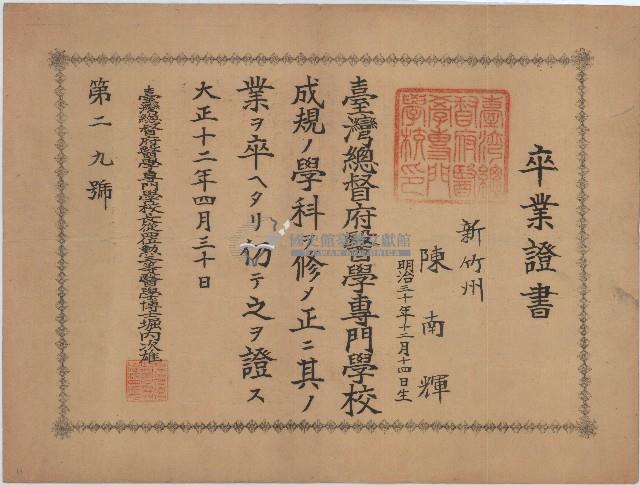 卒業證書
臺灣總督府醫學專門學校印
新竹州
陳南輝
明治三十年十二月十四日生
臺灣總督府醫學專門學校
成規ノ學科ヲ修メ正ニ其ノ
業ヲ卒ヘタリ仍テ之ヲ證ス
大正十二年四月三十日
臺灣總督府醫學專門學校長從四位勲三等醫學博士堀內次雄
第二九號
國史館臺灣文獻館
TAIWAN HISTORICA